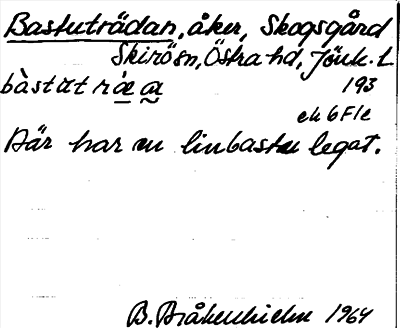 Bastuträdan, åker, Skogsgård
Skirö sn, Östra hd, Jönk. L
bàstɑtræ̀ɑ 193
ek 6F1e
Där har en linbastu legat.
B. Bråkenhielm 1964